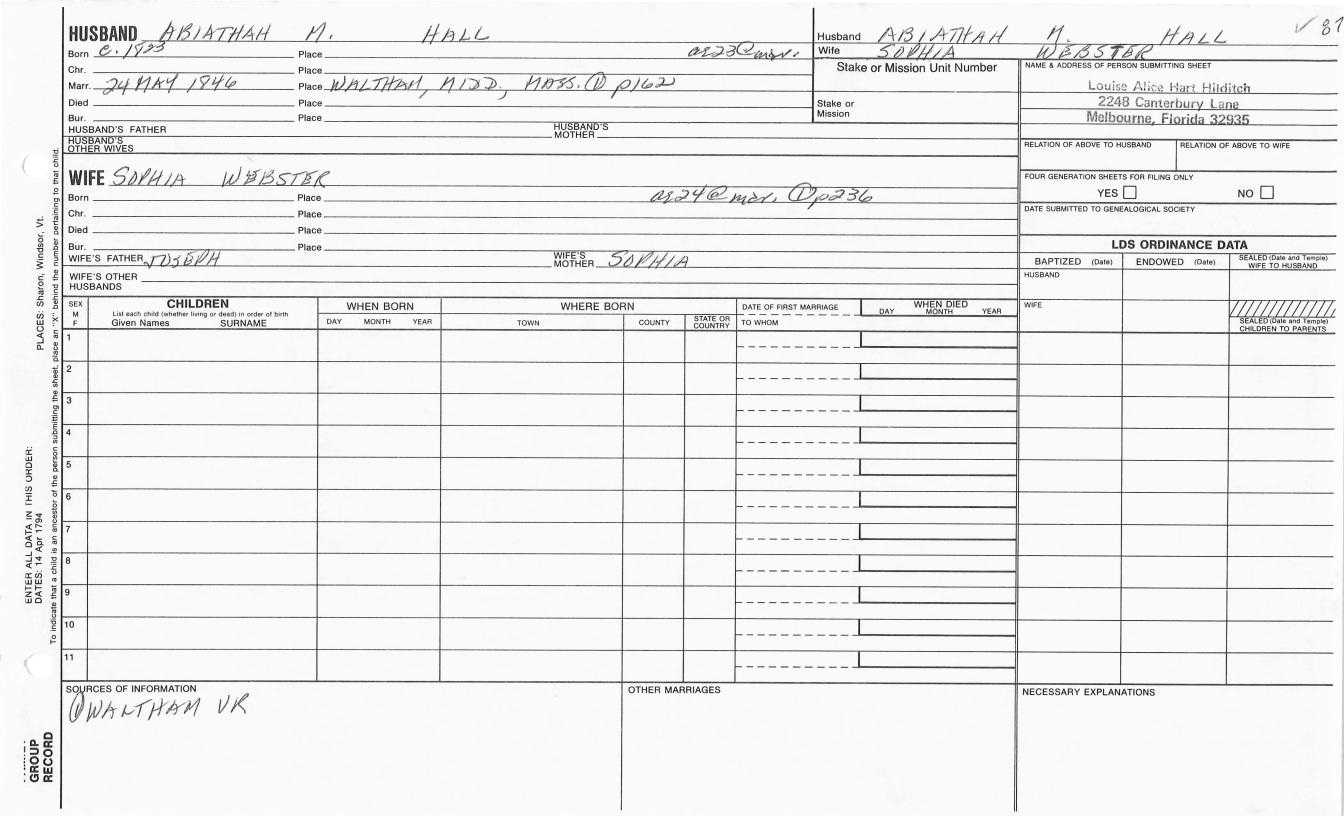 HUSBAND ABIATHAH M. HALL
Born c. 1823 Place ae23@mar.
Chr. Place
Marr. 24 MAY 1846 Place WALTHAM, MIDD., MASS. ① p162
Died Place
Bur. Place
HUSBAND'S FATHER HUSBAND'S MOTHER
HUSBAND'S OTHER WIVES
WIFE SOPHIA WEBSTER
Born Place ae24@mar. ① p236
Chr. Place
Died Place
Bur. Place
WIFE'S FATHER JOSEPH WIFE'S MOTHER SOPHIA
WIFE'S OTHER HUSBANDS
Husband ABIATHAH M. HALL
Wife SOPHIA WEBSTER
✓ 81
Stake or Mission Unit Number
Stake or Mission
NAME & ADDRESS OF PERSON SUBMITTING SHEET
Louise Alice Hart Hilditch
2248 Canterbury Lane
Melbourne, Florida 32935
RELATION OF ABOVE TO HUSBAND RELATION OF ABOVE TO WIFE
FOUR GENERATION SHEETS FOR FILING ONLY
YES NO
DATE SUBMITTED TO GENEALOGICAL SOCIETY
LDS ORDINANCE DATA
BAPTIZED (Date) ENDOWED (Date) SEALED (Date and Temple) WIFE TO HUSBAND
HUSBAND
WIFE
SEALED (Date and Temple) CHILDREN TO PARENTS
SEX M F
CHILDREN
List each child (whether living or dead) in order of birth
Given Names SURNAME
WHEN BORN
DAY MONTH YEAR
WHERE BORN
TOWN COUNTY STATE OR COUNTRY
DATE OF FIRST MARRIAGE
TO WHOM
WHEN DIED
DAY MONTH YEAR
1
2
3
4
5
6
7
8
9
10
11
SOURCES OF INFORMATION
① WALTHAM VR
OTHER MARRIAGES
NECESSARY EXPLANATIONS
ENTER ALL DATA IN THIS ORDER:
DATES: 14 Apr 1794 PLACES: Sharon, Windsor, Vt.
To indicate that a child is an ancestor of the person submitting the sheet, place an "X" behind the number pertaining to that child.
GROUP
RECORD